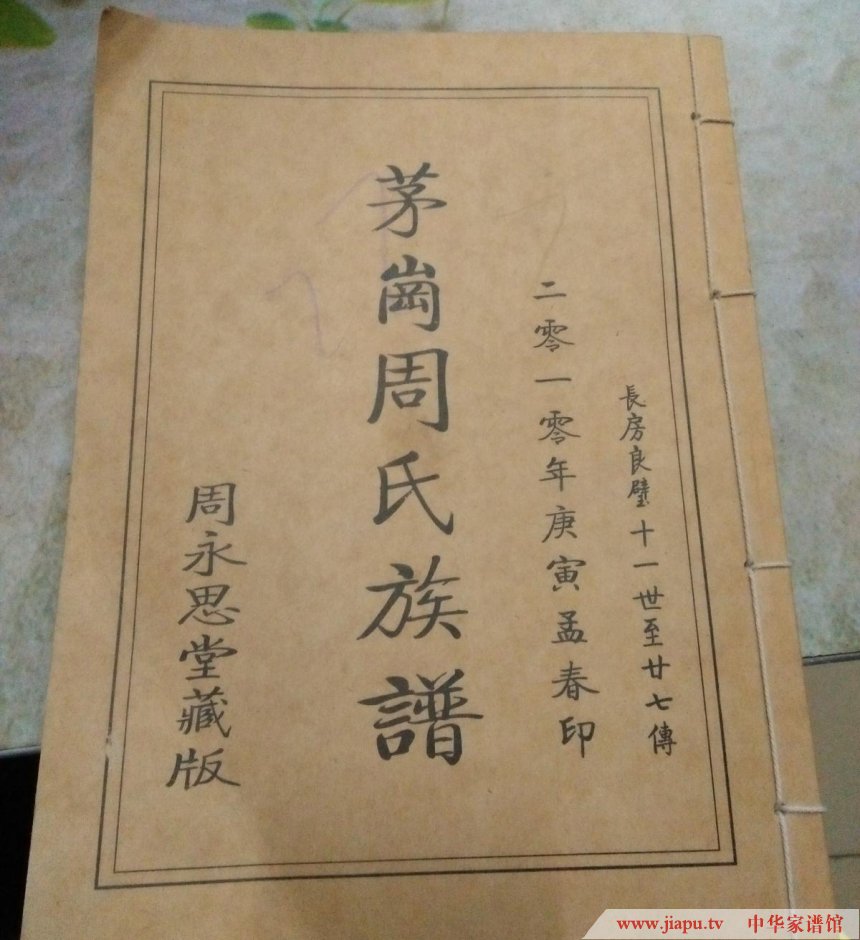 長房良璧十一世至廿七傳
二零一零年庚寅孟春印
茅崗周氏族譜
周永思堂藏版
www.jiapu.tv 中华家谱馆